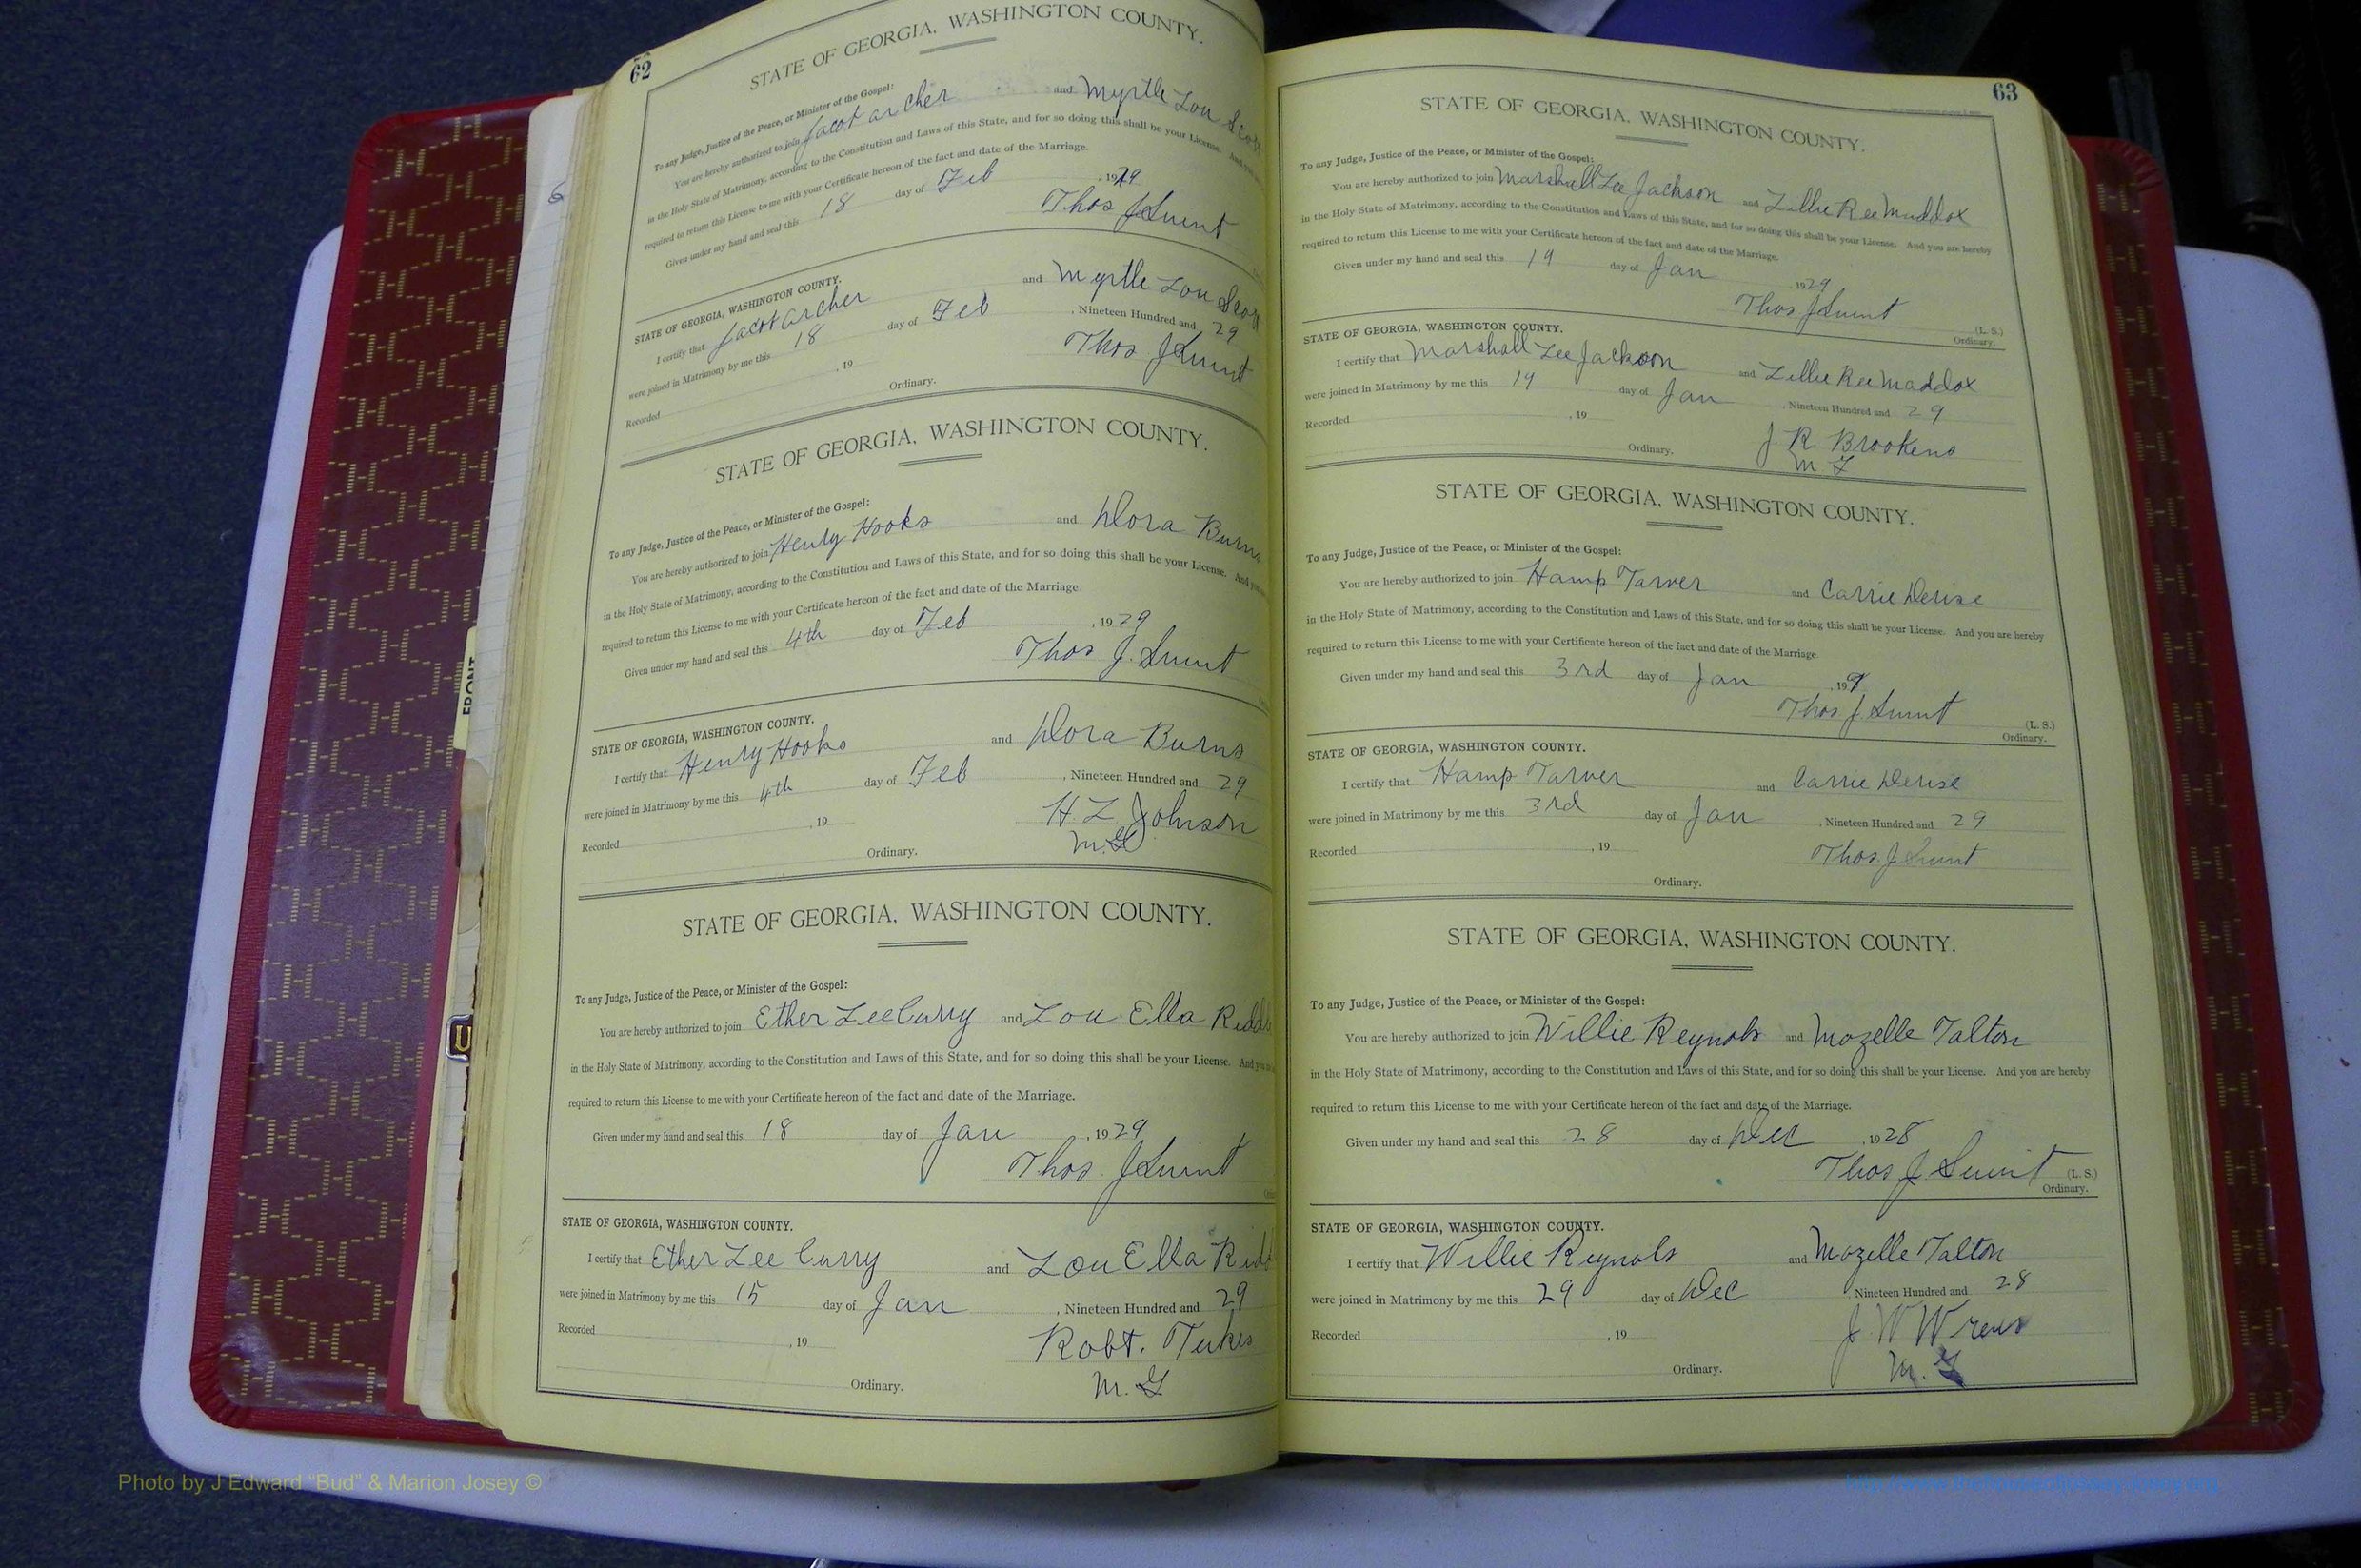 62
STATE OF GEORGIA, WASHINGTON COUNTY.
To any Judge, Justice of the Peace, or Minister of the Gospel:
You are hereby authorized to join Jacob Archer and Myrtle Lou
in the Holy State of Matrimony, according to the Constitution and Laws of this State, and for so doing this shall be your License. And
required to return this License to me with your Certificate hereon of the fact and date of the Marriage.
Given under my hand and seal this 18 day of Feb , 1929
Thos J Swint
STATE OF GEORGIA, WASHINGTON COUNTY.
I certify that Jacob Archer and Myrtle Lou
were joined in Matrimony by me this 18 day of Feb , Nineteen Hundred and 29
Recorded , 19 Thos J Swint
Ordinary.
STATE OF GEORGIA, WASHINGTON COUNTY.
To any Judge, Justice of the Peace, or Minister of the Gospel:
You are hereby authorized to join Henry Hooks and Dora Burns
in the Holy State of Matrimony, according to the Constitution and Laws of this State, and for so doing this shall be your License. And
required to return this License to me with your Certificate hereon of the fact and date of the Marriage
Given under my hand and seal this 4th day of Feb , 1929
Thos J. Swint
STATE OF GEORGIA, WASHINGTON COUNTY.
I certify that Henry Hooks and Dora Burns
were joined in Matrimony by me this 4th day of Feb , Nineteen Hundred and 29
Recorded , 19 H. L. Johnson
Ordinary. M.G
STATE OF GEORGIA, WASHINGTON COUNTY.
To any Judge, Justice of the Peace, or Minister of the Gospel:
You are hereby authorized to join Ether Lee Curry and Lou Ella
in the Holy State of Matrimony, according to the Constitution and Laws of this State, and for so doing this shall be your License. And
required to return this License to me with your Certificate hereon of the fact and date of the Marriage.
Given under my hand and seal this 18 day of Jan , 1929
Thos. J Swint
STATE OF GEORGIA, WASHINGTON COUNTY.
I certify that Ether Lee Curry and Lou Ella
were joined in Matrimony by me this 15 day of Jan , Nineteen Hundred and 29
Recorded , 19 Robt.
Ordinary. M. G
63
STATE OF GEORGIA, WASHINGTON COUNTY.
To any Judge, Justice of the Peace, or Minister of the Gospel:
You are hereby authorized to join Marshall Lee Jackson and Lillie Ree Maddox
in the Holy State of Matrimony, according to the Constitution and Laws of this State, and for so doing this shall be your License. And you are hereby
required to return this License to me with your Certificate hereon of the fact and date of the Marriage.
Given under my hand and seal this 19 day of Jan , 1929
Thos J Swint (L. S.)
Ordinary.
STATE OF GEORGIA, WASHINGTON COUNTY.
I certify that Marshall Lee Jackson and Lillie Ree Maddox
were joined in Matrimony by me this 19 day of Jan , Nineteen Hundred and 29
Recorded , 19 J R Brookens
Ordinary. M. G
STATE OF GEORGIA, WASHINGTON COUNTY.
To any Judge, Justice of the Peace, or Minister of the Gospel:
You are hereby authorized to join Hamp Tarver and Carrie Derise
in the Holy State of Matrimony, according to the Constitution and Laws of this State, and for so doing this shall be your License. And you are hereby
required to return this License to me with your Certificate hereon of the fact and date of the Marriage
Given under my hand and seal this 3rd day of Jan , 199
Thos J. Swint (L. S.)
Ordinary.
STATE OF GEORGIA, WASHINGTON COUNTY.
I certify that Hamp Tarver and Carrie Derise
were joined in Matrimony by me this 3rd day of Jan , Nineteen Hundred and 29
Recorded , 19 Thos. J Swint
Ordinary.
STATE OF GEORGIA, WASHINGTON COUNTY.
To any Judge, Justice of the Peace, or Minister of the Gospel:
You are hereby authorized to join Willie Reynols and Mozelle Talton
in the Holy State of Matrimony, according to the Constitution and Laws of this State, and for so doing this shall be your License. And you are hereby
required to return this License to me with your Certificate hereon of the fact and date of the Marriage.
Given under my hand and seal this 28 day of Dec , 1928
Thos J Swint (L. S.)
Ordinary.
STATE OF GEORGIA, WASHINGTON COUNTY.
I certify that Willie Reynols and Mozelle Talton
were joined in Matrimony by me this 29 day of Dec , Nineteen Hundred and 28
Recorded , 19 J W
Ordinary. M. G
FRONT
Photo by J Edward "Bud" & Marion Josey ©